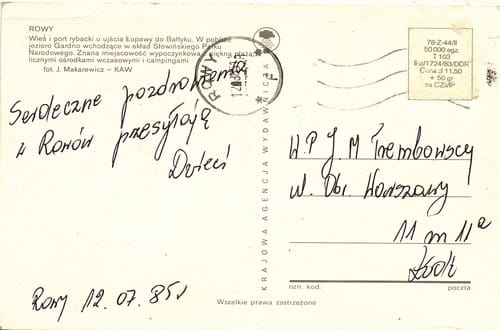 ROWY
Wieś i port rybacki u ujścia Łupawy do Bałtyku. W pobliżu
jezioro Gardno wchodzące w skład Słowińskiego Parku
Narodowego. Znana miejscowość wypoczynkowa z piękną plażą,
licznymi ośrodkami wczasowymi i campingami
fot. J. Makarewicz - KAW
Serdeczne pozdrowienia
z Rowów przesyłają
Dzieci
Rowy 12.07.85r
KRAJOWA AGENCJA WYDAWNICZA
ROWY
78-Z-44/II
50 000 egz.
T 103
1724/83/DDR
Cena zł 11,50
+ 50 gr
na CZMP
W.P J.M Trembowscy
ul. Obr. Warszawy
11 m 11a
ozn. kod.
poczta
Wszelkie prawa zastrzeżone